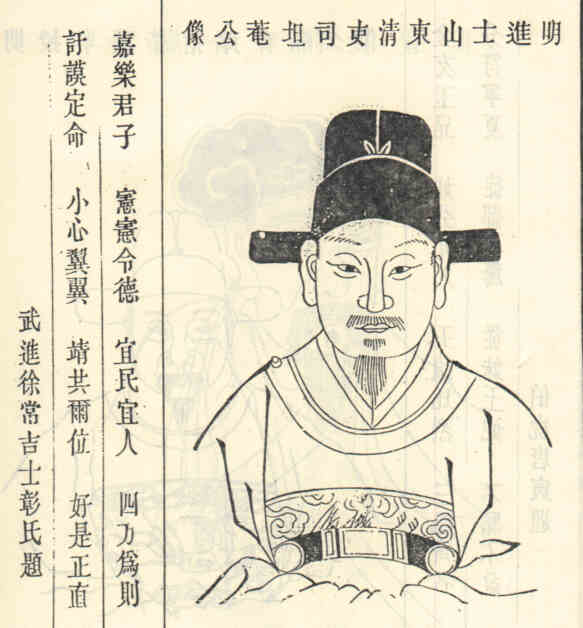 明進士山東清吏司坦菴公像
嘉樂君子 憲憲令德 宜民宜人 四方爲則
訏謨定命 小心翼翼 靖共爾位 好是正直
武進徐常吉士彰氏題